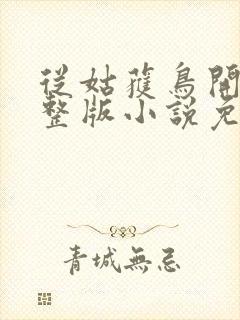 從姑獲鳥開
整版小說免
青城無忌